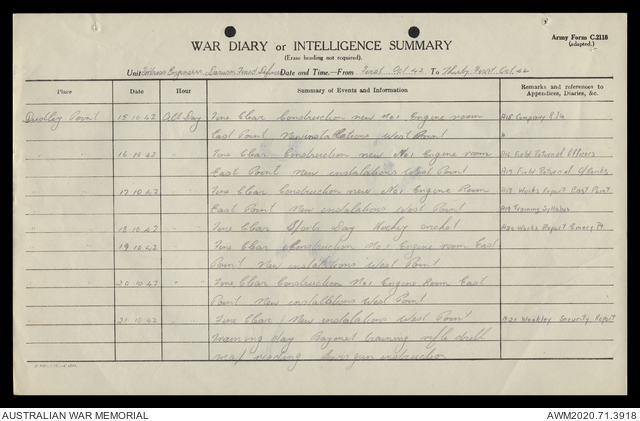 Army Form C.2118
(adapted.)
WAR DIARY or INTELLIGENCE SUMMARY
(Erase heading not required).
Unit Fortress Engineers Darwin Fixed Defences Date and Time.—From First Oct 42 To Thirty First Oct 42
Place Date Hour Summary of Events and Information Remarks and references to Appendices, Diaries, &c.
Dudley Point 15.10.42 All Day Fine Clear Construction new No1 Engine room A15 Company
East Point New installations West Point
16.10.42 Fine Clear Construction new No1 Engine room A16 Field Return Officers
East Point New installations West Point A17 Field Return O/Ranks
17.10.42 Fine Clear Construction new No1 Engine Room A18 Works Report East Point
East Point New installations West Point A19 Training Syllabus
18.10.42 Fine Clear Sports Day Hockey cricket A20 Works Report Emery Pt
19.10.42 Fine Clear Construction No1 Engine room East
Point New installations West Point
20.10.42 Fine Clear Construction No1 Engine Room East
Point New installations West Point
21.10.42 Fine Clear New installations West Point A21 Weekly Security Report
Training day Bayonet training rifle drill
map reading Bren gun instruction
AUSTRALIAN WAR MEMORIAL
AWM2020.71.3918